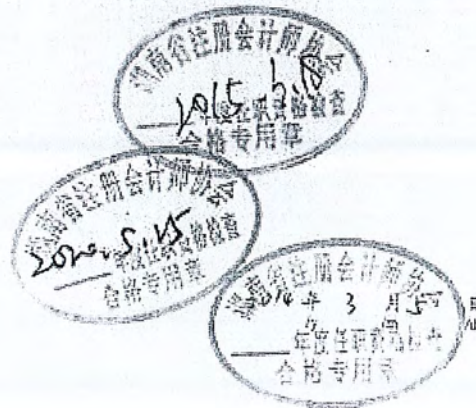 湖南省注册会计师协会
2015
年度任职资格检查
合格专用章
湖南省注册会计师协会
2020.5.
年度任职资格检查
合格专用章
湖南省注册会计师协会
年 3 月 5
年度任职资格检查
合格专用章